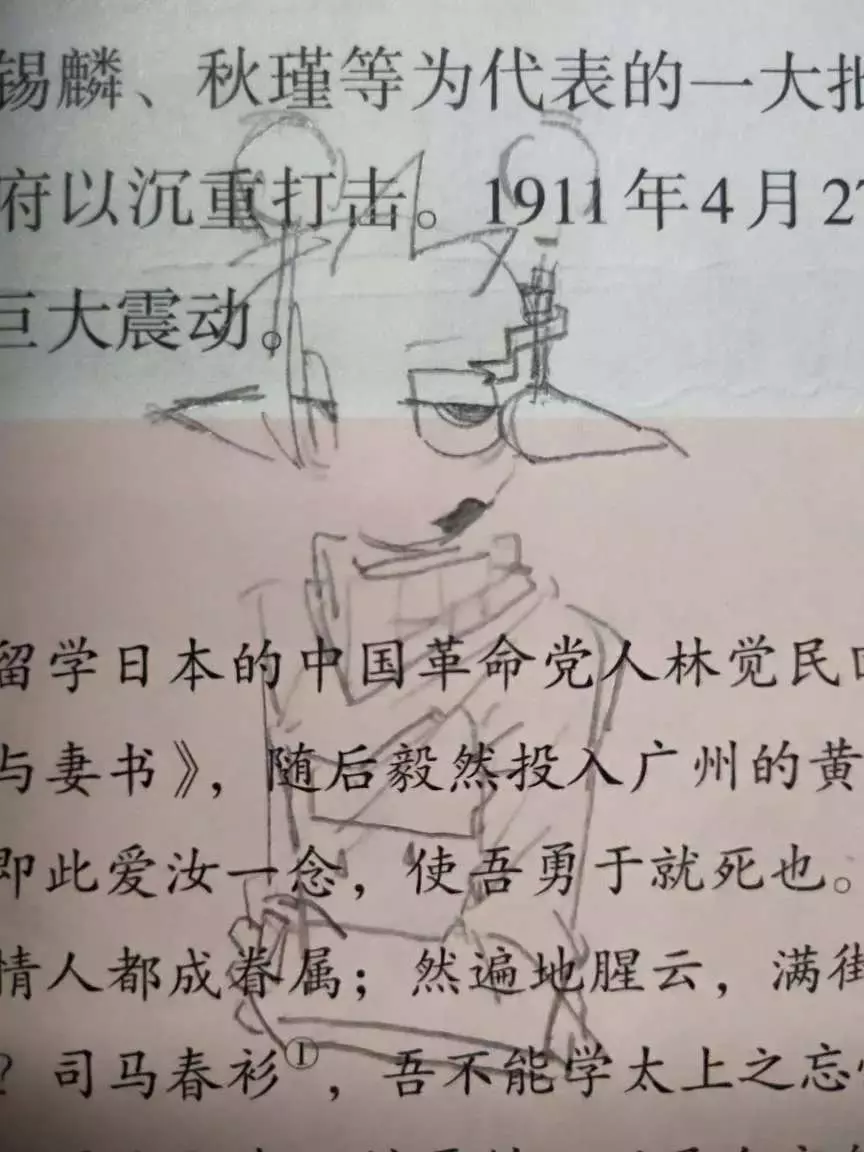 锡麟、秋瑾等为代表的一大批
府以沉重打击。1911年4月27
巨大震动。
留学日本的中国革命党人林觉民
与妻书》，随后毅然投入广州的黄
即此爱汝一念，使吾勇于就死也。
情人都成眷属；然遍地腥云，满街
？司马春衫①，吾不能学太上之忘情